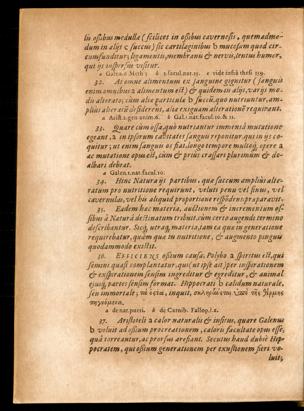 lis ossibus medulla (scilicet in ossibus cavernosis, quemadmo-
dum in alijs c succus) sic cartilaginibus b mucosum quod cir-
cumfunditur; ligamentis, membranis & nervis, lentus humor,
qui ijs inspersus visitur.
a Galen. Meth. b 2. facul. nat. c vide infrà thesi 119.
32. At omne alimentum ex sanguine gignitur (sanguis
enim omnibus a alimentum est) & quidem aliis alijs varijs mo-
dis alterato; cum aliæ particulæ b succũ, quo nutriuntur, am-
plius alteratũ desiderent, aliæ exiguam alterationẽ requirant.
a Arist. 2. gen. anim. 6. b Gal. 1. nat. facul. 10. & 11.
33. Quare cùm ossa, quo nutriantur immensa mutatione
egeant, a in ipsorum cavitates sanguis reponitur, qui in ijs co-
quitur; ut enim sanguis os fiat, longo tempore multoq́; opere a
ac mutatione opus est, cùm & prius crassari plurimùm & de-
albari debeat.
a Galen. 1. nat. facul. 10.
34. Hinc Natura ijs partibus, quæ succum amplius alte-
ratum pro nutritione requirunt, veluti penu vel sinus, vel
cavernulas, vel his aliquid proportione respõdens præparavit.
35. Eadem hac materia, auctionem & incrementum os-
sibus à Naturâ destinatum tribuit, cùm certo augendi termino
describantur. Sicq́; utraq́; materia, tam ea quæ in generatione
requirebatur, quàm quæ in nutritione, & augmento pinguis
quodammodo extitit.
36. EFFICIENS ossium causa, Polybo a spiritus est, qui
semini quasi complantatur, qui ut ipse ait per inspirationem
& exspirationem sensim ingreditur & egreditur, & animal
ejusq́; partes sensim format. Hippocrati b calidum naturale,
seu immortale;
a de nat. pueri. b de Carnib. Fallop. l. 2.
37. Aristoteli a calor naturalis & insitus, quare Galenus
b veluit ad ossium procreationem, caloris facultate opus esse,
quâ torreantur, ac prorsus arescant. Secutus haud dubiè Hip-
pocratem, qui ossium generationem per exustionem fieri vo-
luit;